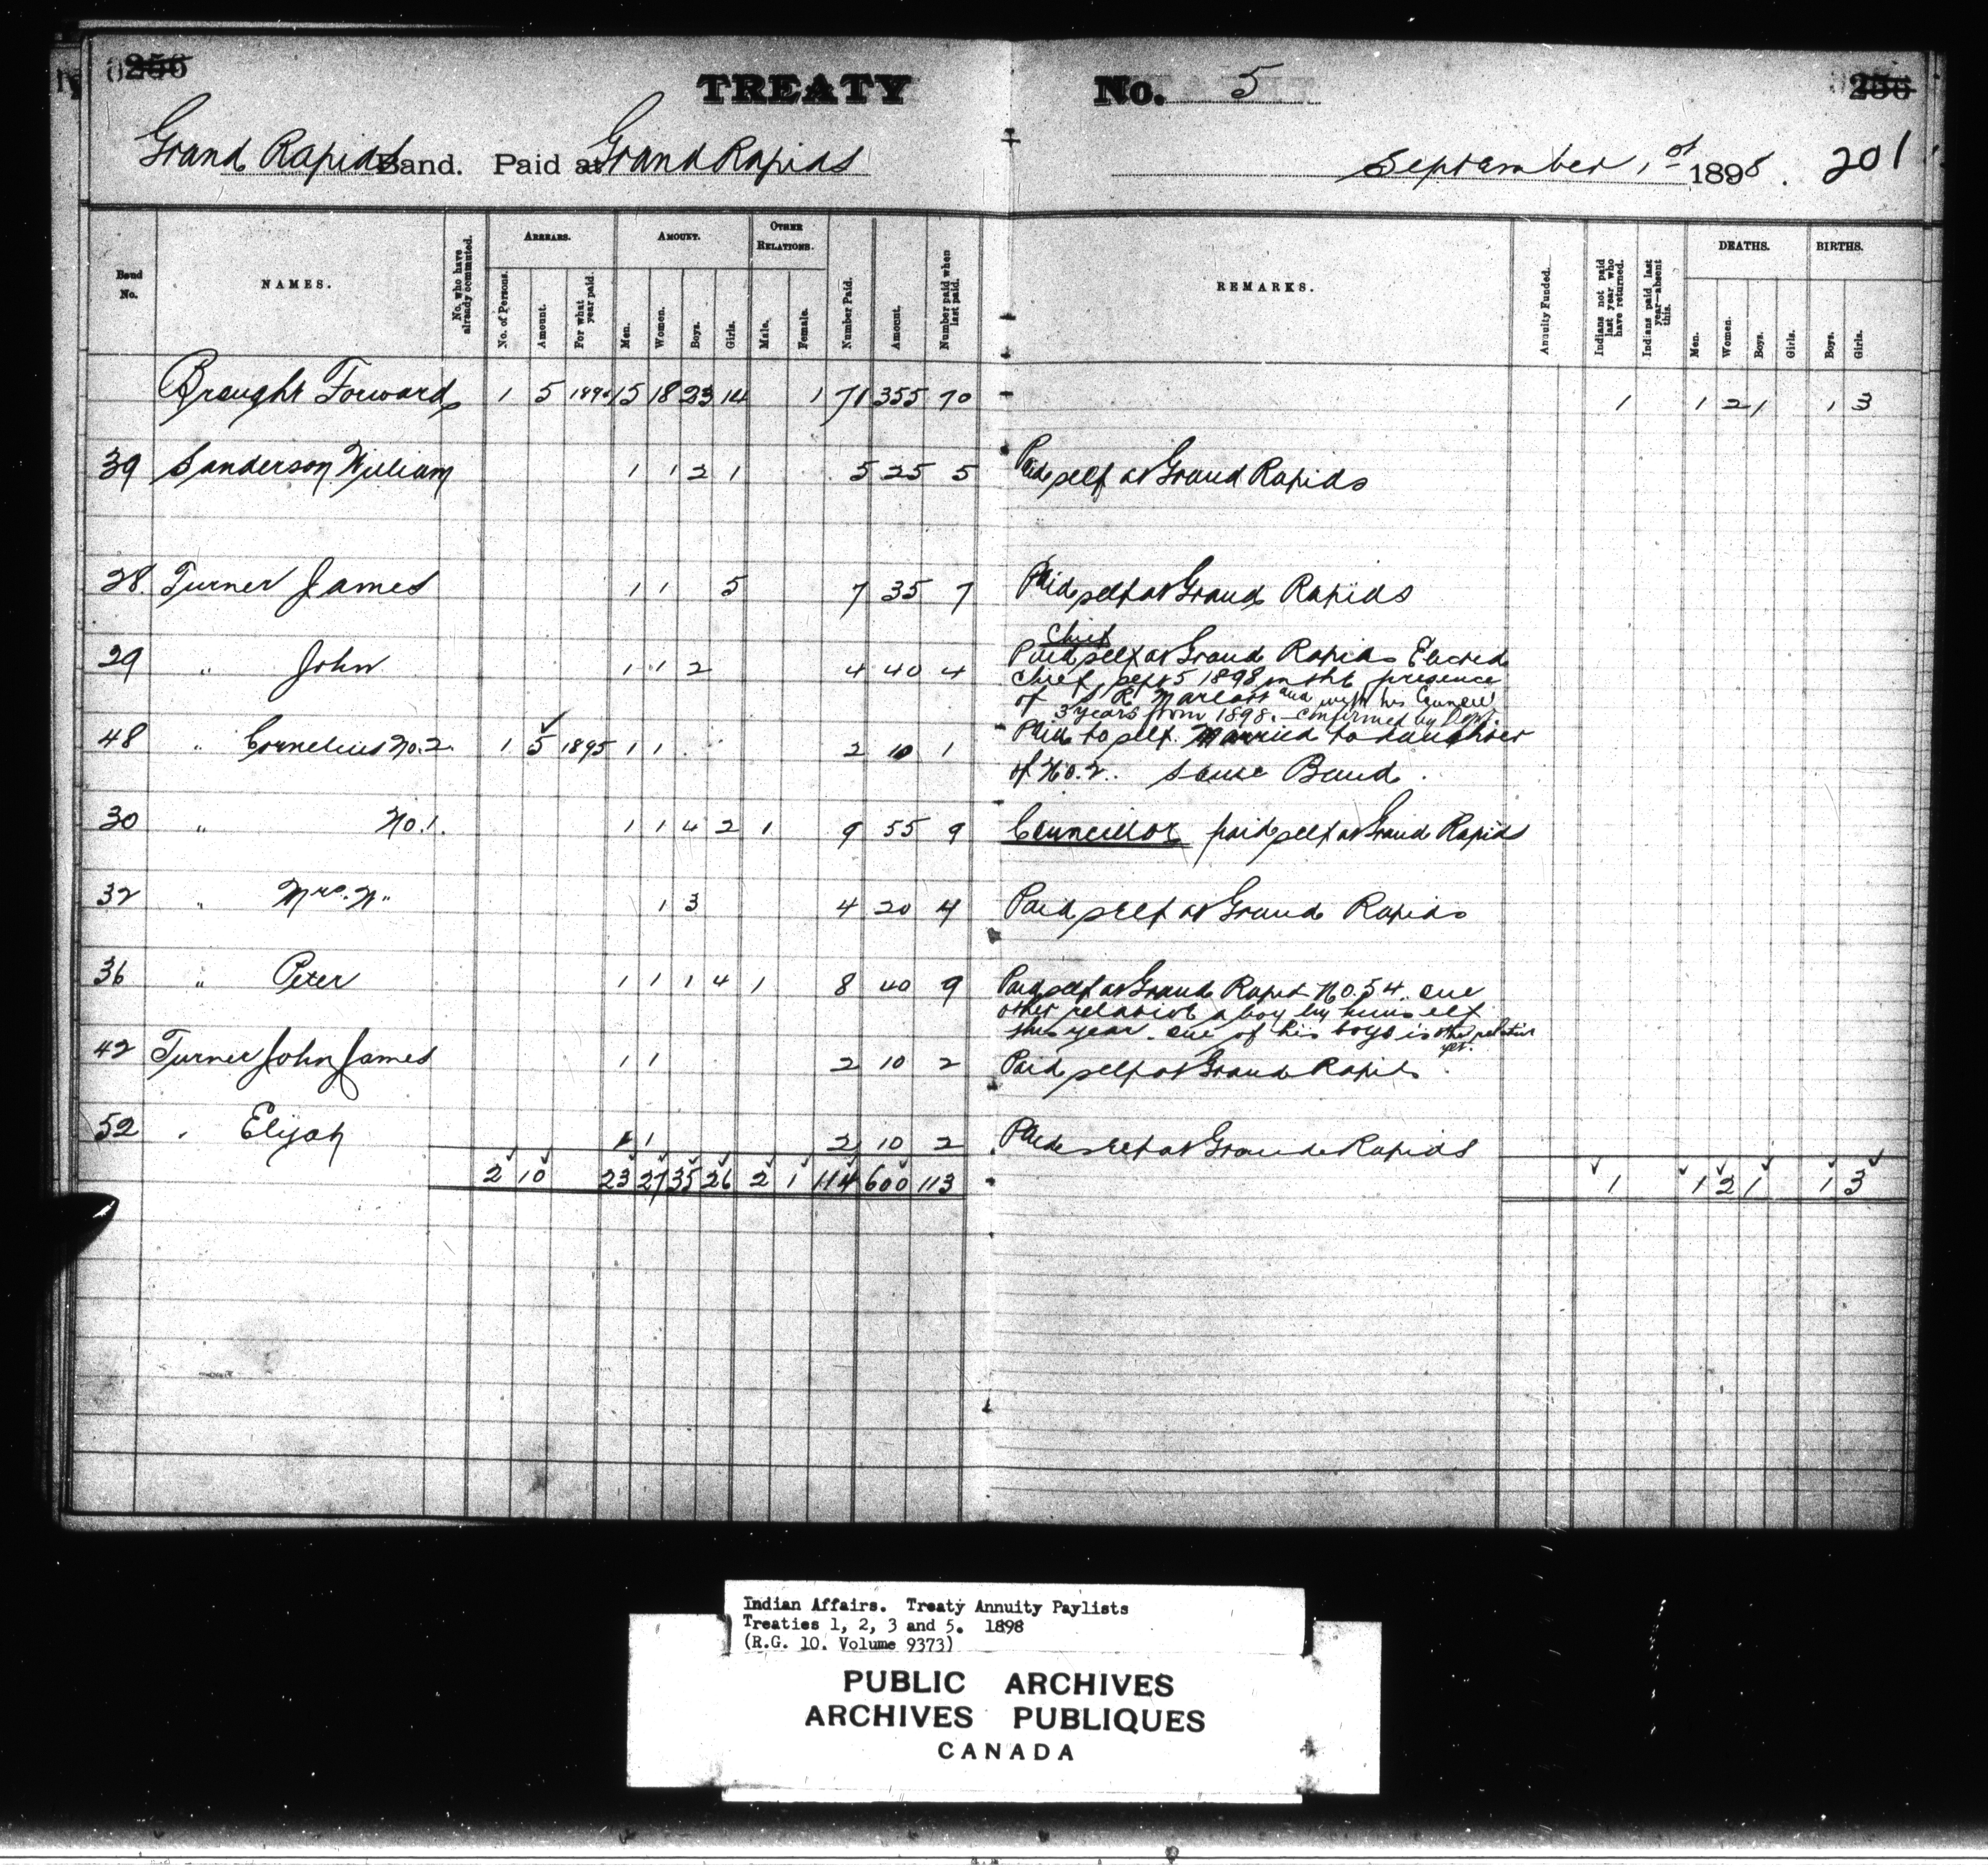 256
TREATY No. 5
256
Grand Rapids Band. Paid at Grand Rapids September 1st 1898. 201
Band No.
NAMES.
No. who have already commuted.
ARREARS.
No. of Persons.
Amount.
For what year paid.
AMOUNT.
Men.
Women.
Boys.
Girls.
OTHER RELATIONS.
Male.
Female.
Number Paid.
Amount.
Number paid when last paid.
REMARKS.
Annuity Funded.
Indians not paid last year who have returned.
Indians paid last year—absent this.
DEATHS.
Men.
Women.
Boys.
Girls.
BIRTHS.
Boys.
Girls.
Brought Forward 1 5 189 15 18 23 14 1 71 355 70 1 1 2 1 1 3
39 Sanderson William 1 1 2 1 5 25 5 Paid self at Grand Rapids
28. Turner James 1 1 5 7 35 7 Paid self at Grand Rapids
Chief
29 " John 1 1 2 4 40 4 Paid self at Grand Rapids Elected
Chief, Sept 5 1898 in the presence
of S R and with his Council
3 years from 1898. confirmed by Dept.
48 " Cornelius No. 2. 1 5 1895 1 1 2 10 1 Paid to self. Married to daughter
of No. 2. Same Band.
30 " No. 1. 1 1 4 2 1 9 55 9 Councillor paid self at Grand Rapids
32 " Mrs. N" 1 3 4 20 4 Paid self at Grand Rapids
36 " Peter 1 1 1 4 1 8 40 9 Paid self at Grand Rapids No. 54. one
other relative a boy by himself
this year. one of his boys is other relative
yet.
42 Turner John James 1 1 2 10 2 Paid self at Grand Rapids
52 " Elijah 1 1 2 10 2 Paid self at Grand Rapids
2 10 23 27 35 26 2 1 114 600 113 1 1 2 1 1 3
Indian Affairs. Treaty Annuity Paylists
Treaties 1, 2, 3 and 5. 1898
(R.G. 10. Volume 9373)
PUBLIC ARCHIVES
ARCHIVES PUBLIQUES
CANADA